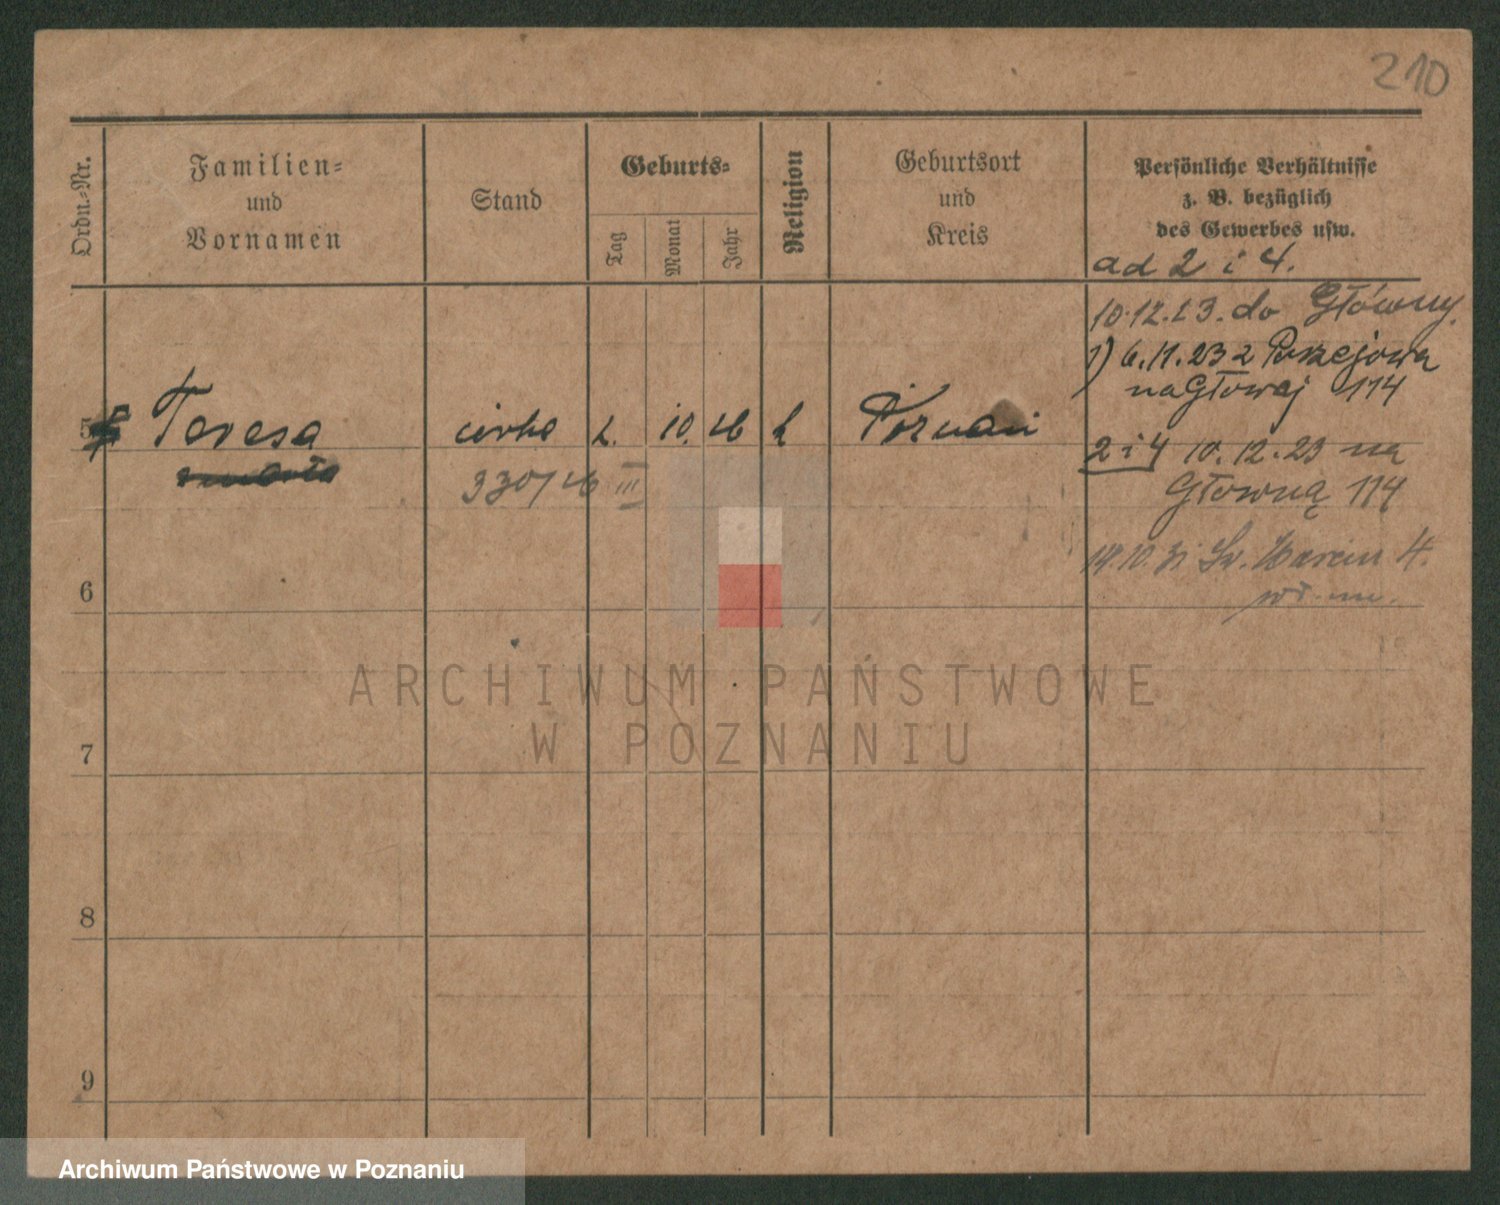 210
Ordn.-Nr.
Familien-
und
Vornamen
Stand
Geburts-
Tag
Monat
Jahr
Religion
Geburtsort
und
Kreis
Persönliche Verhältnisse
z. B. bezüglich
des Gewerbes usw.
ad 2 i 4.
10.12.23. do Główny.
1) 6.11.23 z
na Głównej 114
5 Teresa córka 2. 10. 26 k Poznań
2 i 4 10.12.23 na
Główną 114
330/26 III
14.10.31 Św. Marcin 4.
6
7
8
9
ARCHIWUM PAŃSTWOWE
W POZNANIU
Archiwum Państwowe w Poznaniu